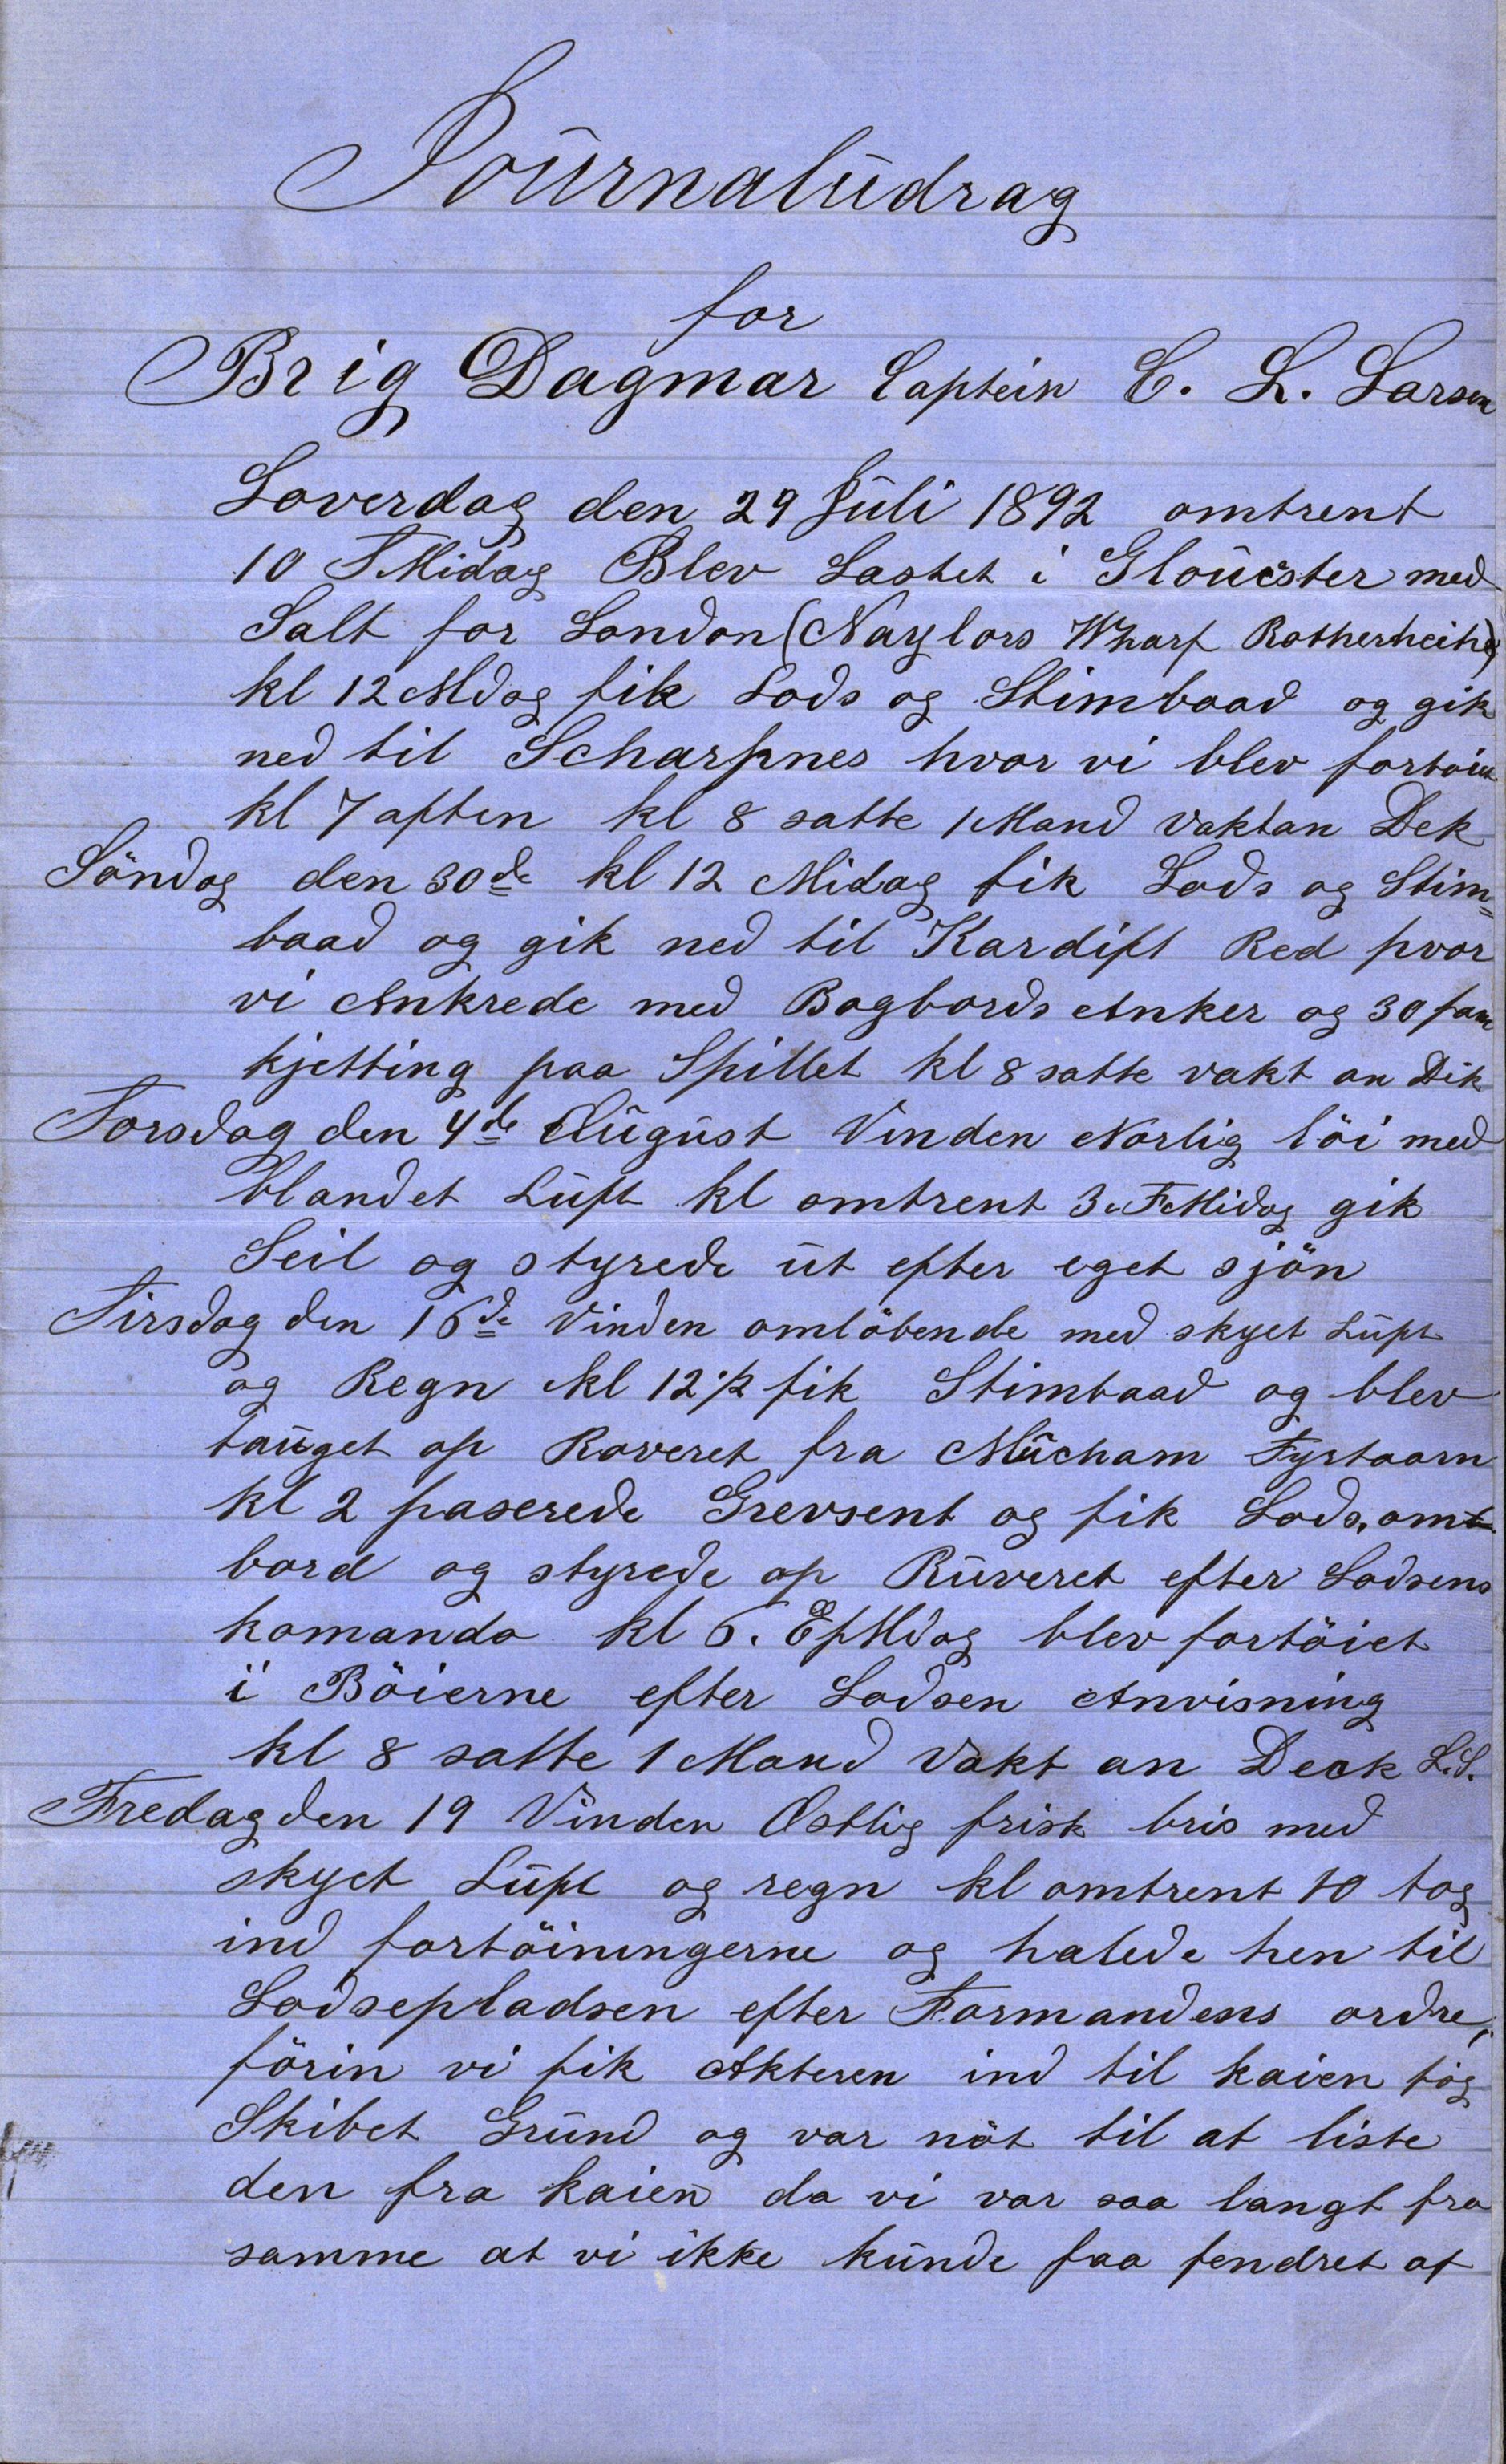 Journaludrag
for
Brig Dagmar Captein C. L. Larsen
Loverdag den 29 Juli 1892 omtrent
10 FMidag Blev Lastet i Gloucster med
Salt for London (Naylors Wharf Rotherheithe)
kl 12 Mdag fik Lods og Stimbaad og gik
ned til Scharpnes hvor vi blev fortöiet
kl 7 aften kl 8 satte 1 Mand vakt an Dek
Söndag den 30de kl 12 Midag fik Lods og Stim=
baad og gik ned til Kardift Red hvor
vi Ankrede med Bagbords Anker og 30 fam
kjetting paa Spillet kl 8 satte vakt an Dik
Torsdag den 4de August Vinden Norlig löi med
blandet Luft kl omtrent 3. FMidag gik
Seil og styrede ut efter eget sjön
Tirsdag den 16de Vinden omlöbende med skyet Luft
og Regn kl 12 1/2 fik Stimbaad og blev
tauget op Raveret fra Mucham Fyrtaarn
kl 2 paserede Grevsent og fik Lods, om
bord og styrede op Ruveret efter Lodsens
komando kl 6. EfMdag blev fortöiet
i Böierne efter Lodsen Anvisning
kl 8 satte 1 Mand Vakt an Deck L.S.
Fredag den 19 Vinden Østlig frisk bris med
skyet Luft og regn kl omtrent 10 tog
ind fortöiningerne og halede hen til
Lodsepladsen efter Formandens ordre,
förin vi fik Akteren ind til kaien tog
Skibet Grund og var nöt til at liste
den fra kaien da vi var saa langt fra
samme at vi ikke kunde faa fendret af